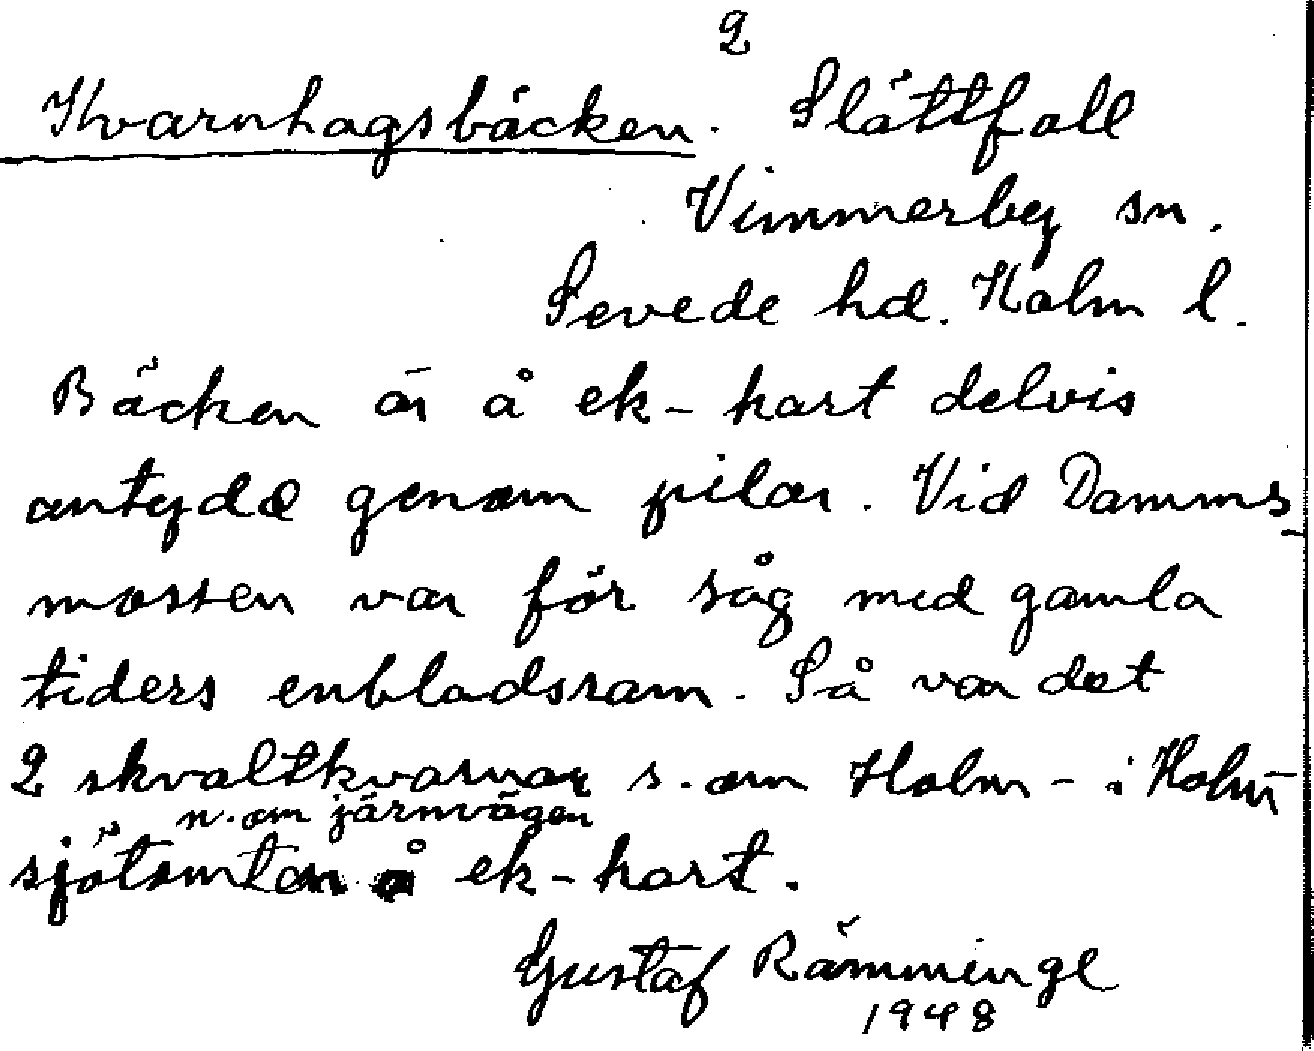 2
Kvarnhagsbäcken. Slättfall
Vimmerby sn.
Sevede hd. Kalm l.
Bäcken är å ek-kart delvis
antydd genom pilar. Vid Damms-
mossen var för såg med gamla
tiders enbladsram. Så var det
2 skvaltkvarnar s. om Holm - i Holm-
n. om järnvägen
sjötomten å ek-kart.
Gustaf Rämminge
1948